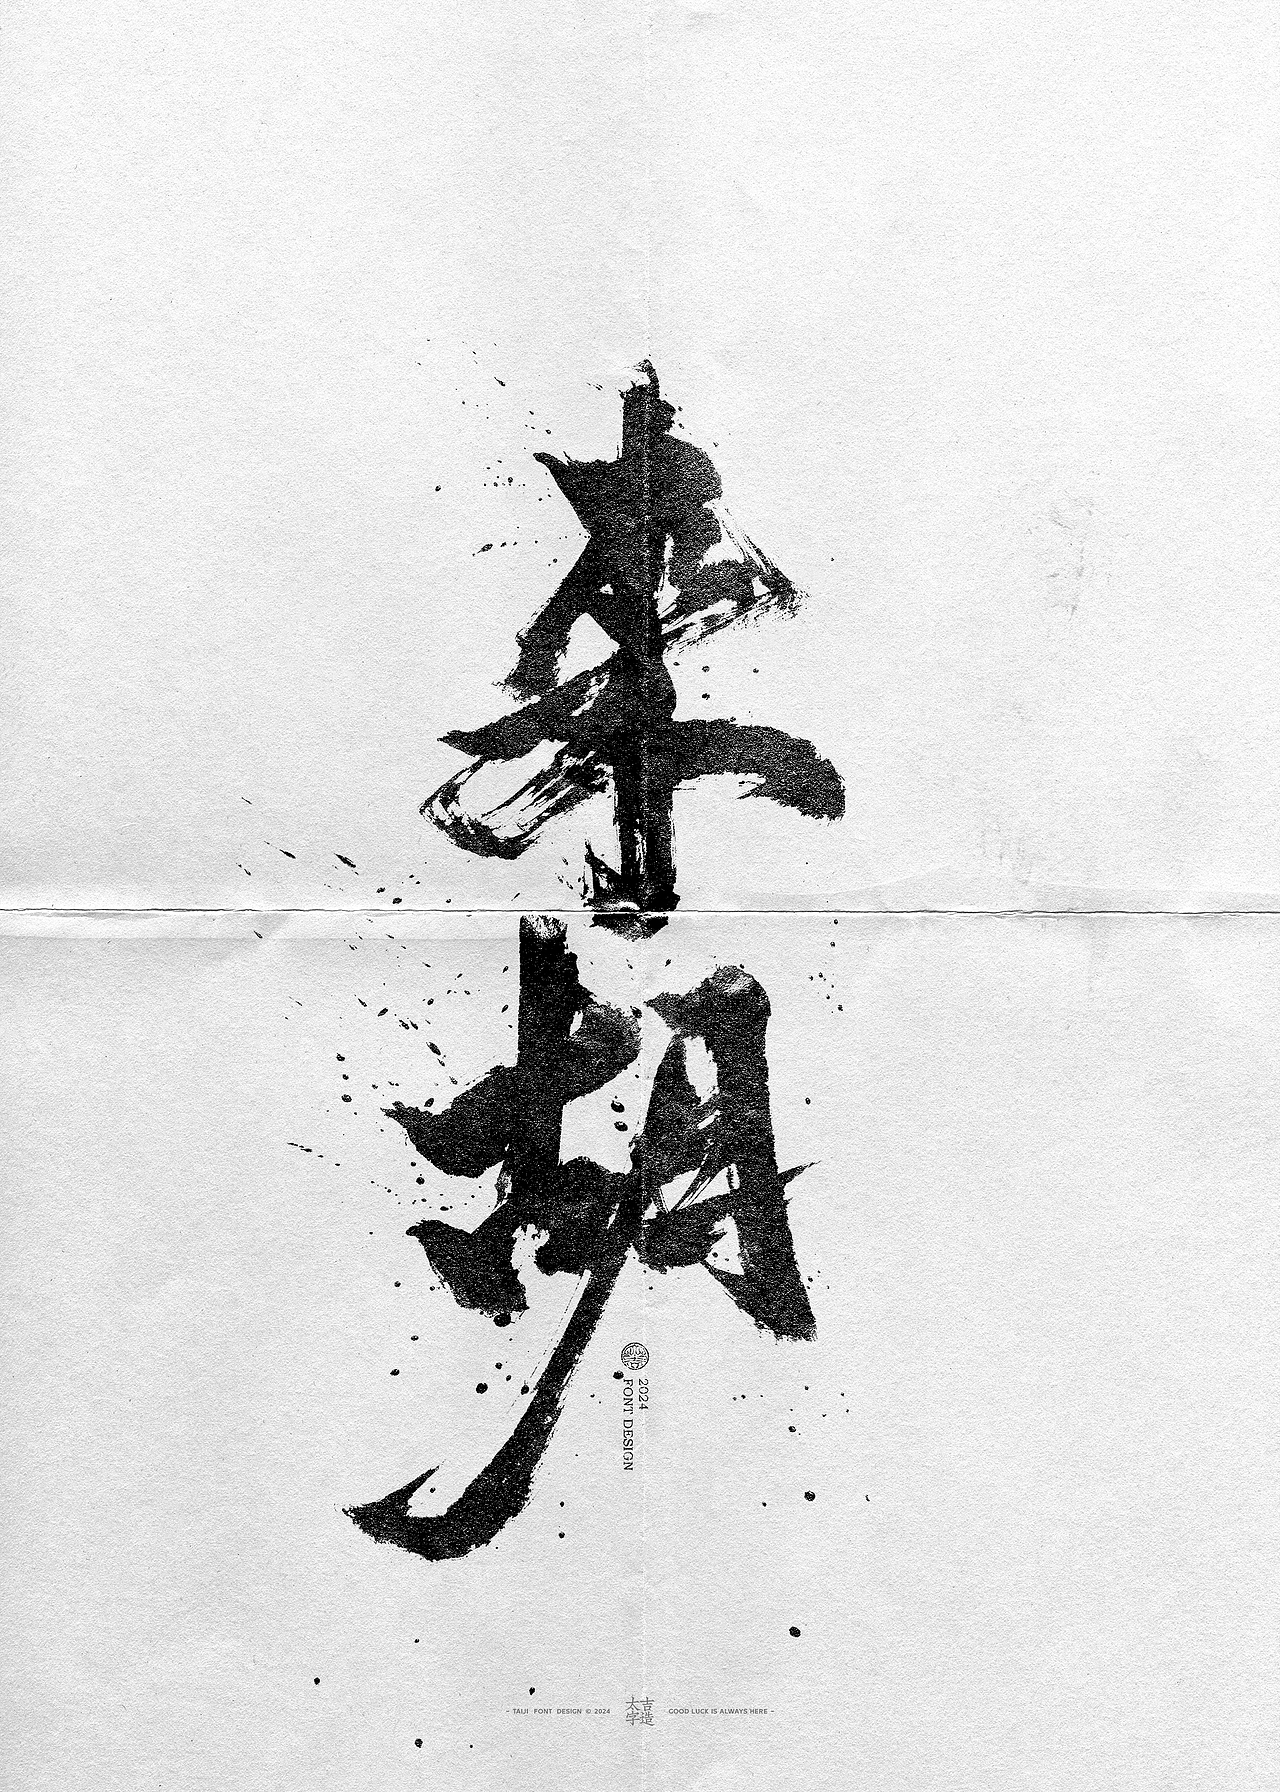 胡
2024
FONT DESIGN
- TAIJI FONT DESIGN © 2024
太字
吉造
GOOD LUCK IS ALWAYS HERE -